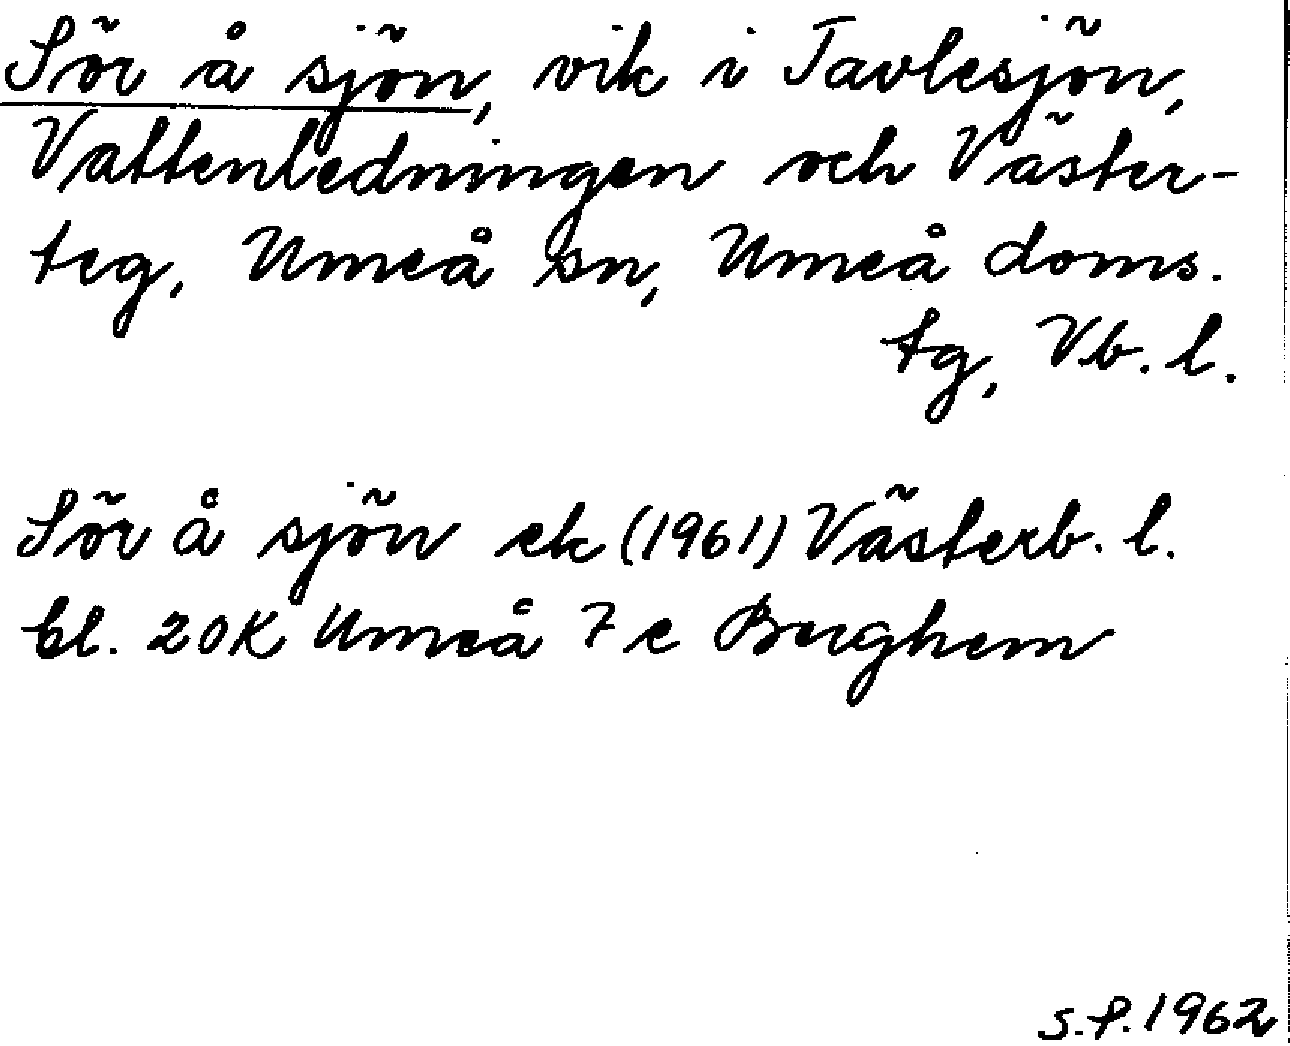 Sör å sjön, vik i Tavlesjön,
Vattenledningen och Väster-
teg, Umeå sn, Umeå doms.
tg, Vb. l.
Sör å sjön ek (1961) Västerb. l.
bl. 20K Umeå 7 e Berghem
S.P. 1962